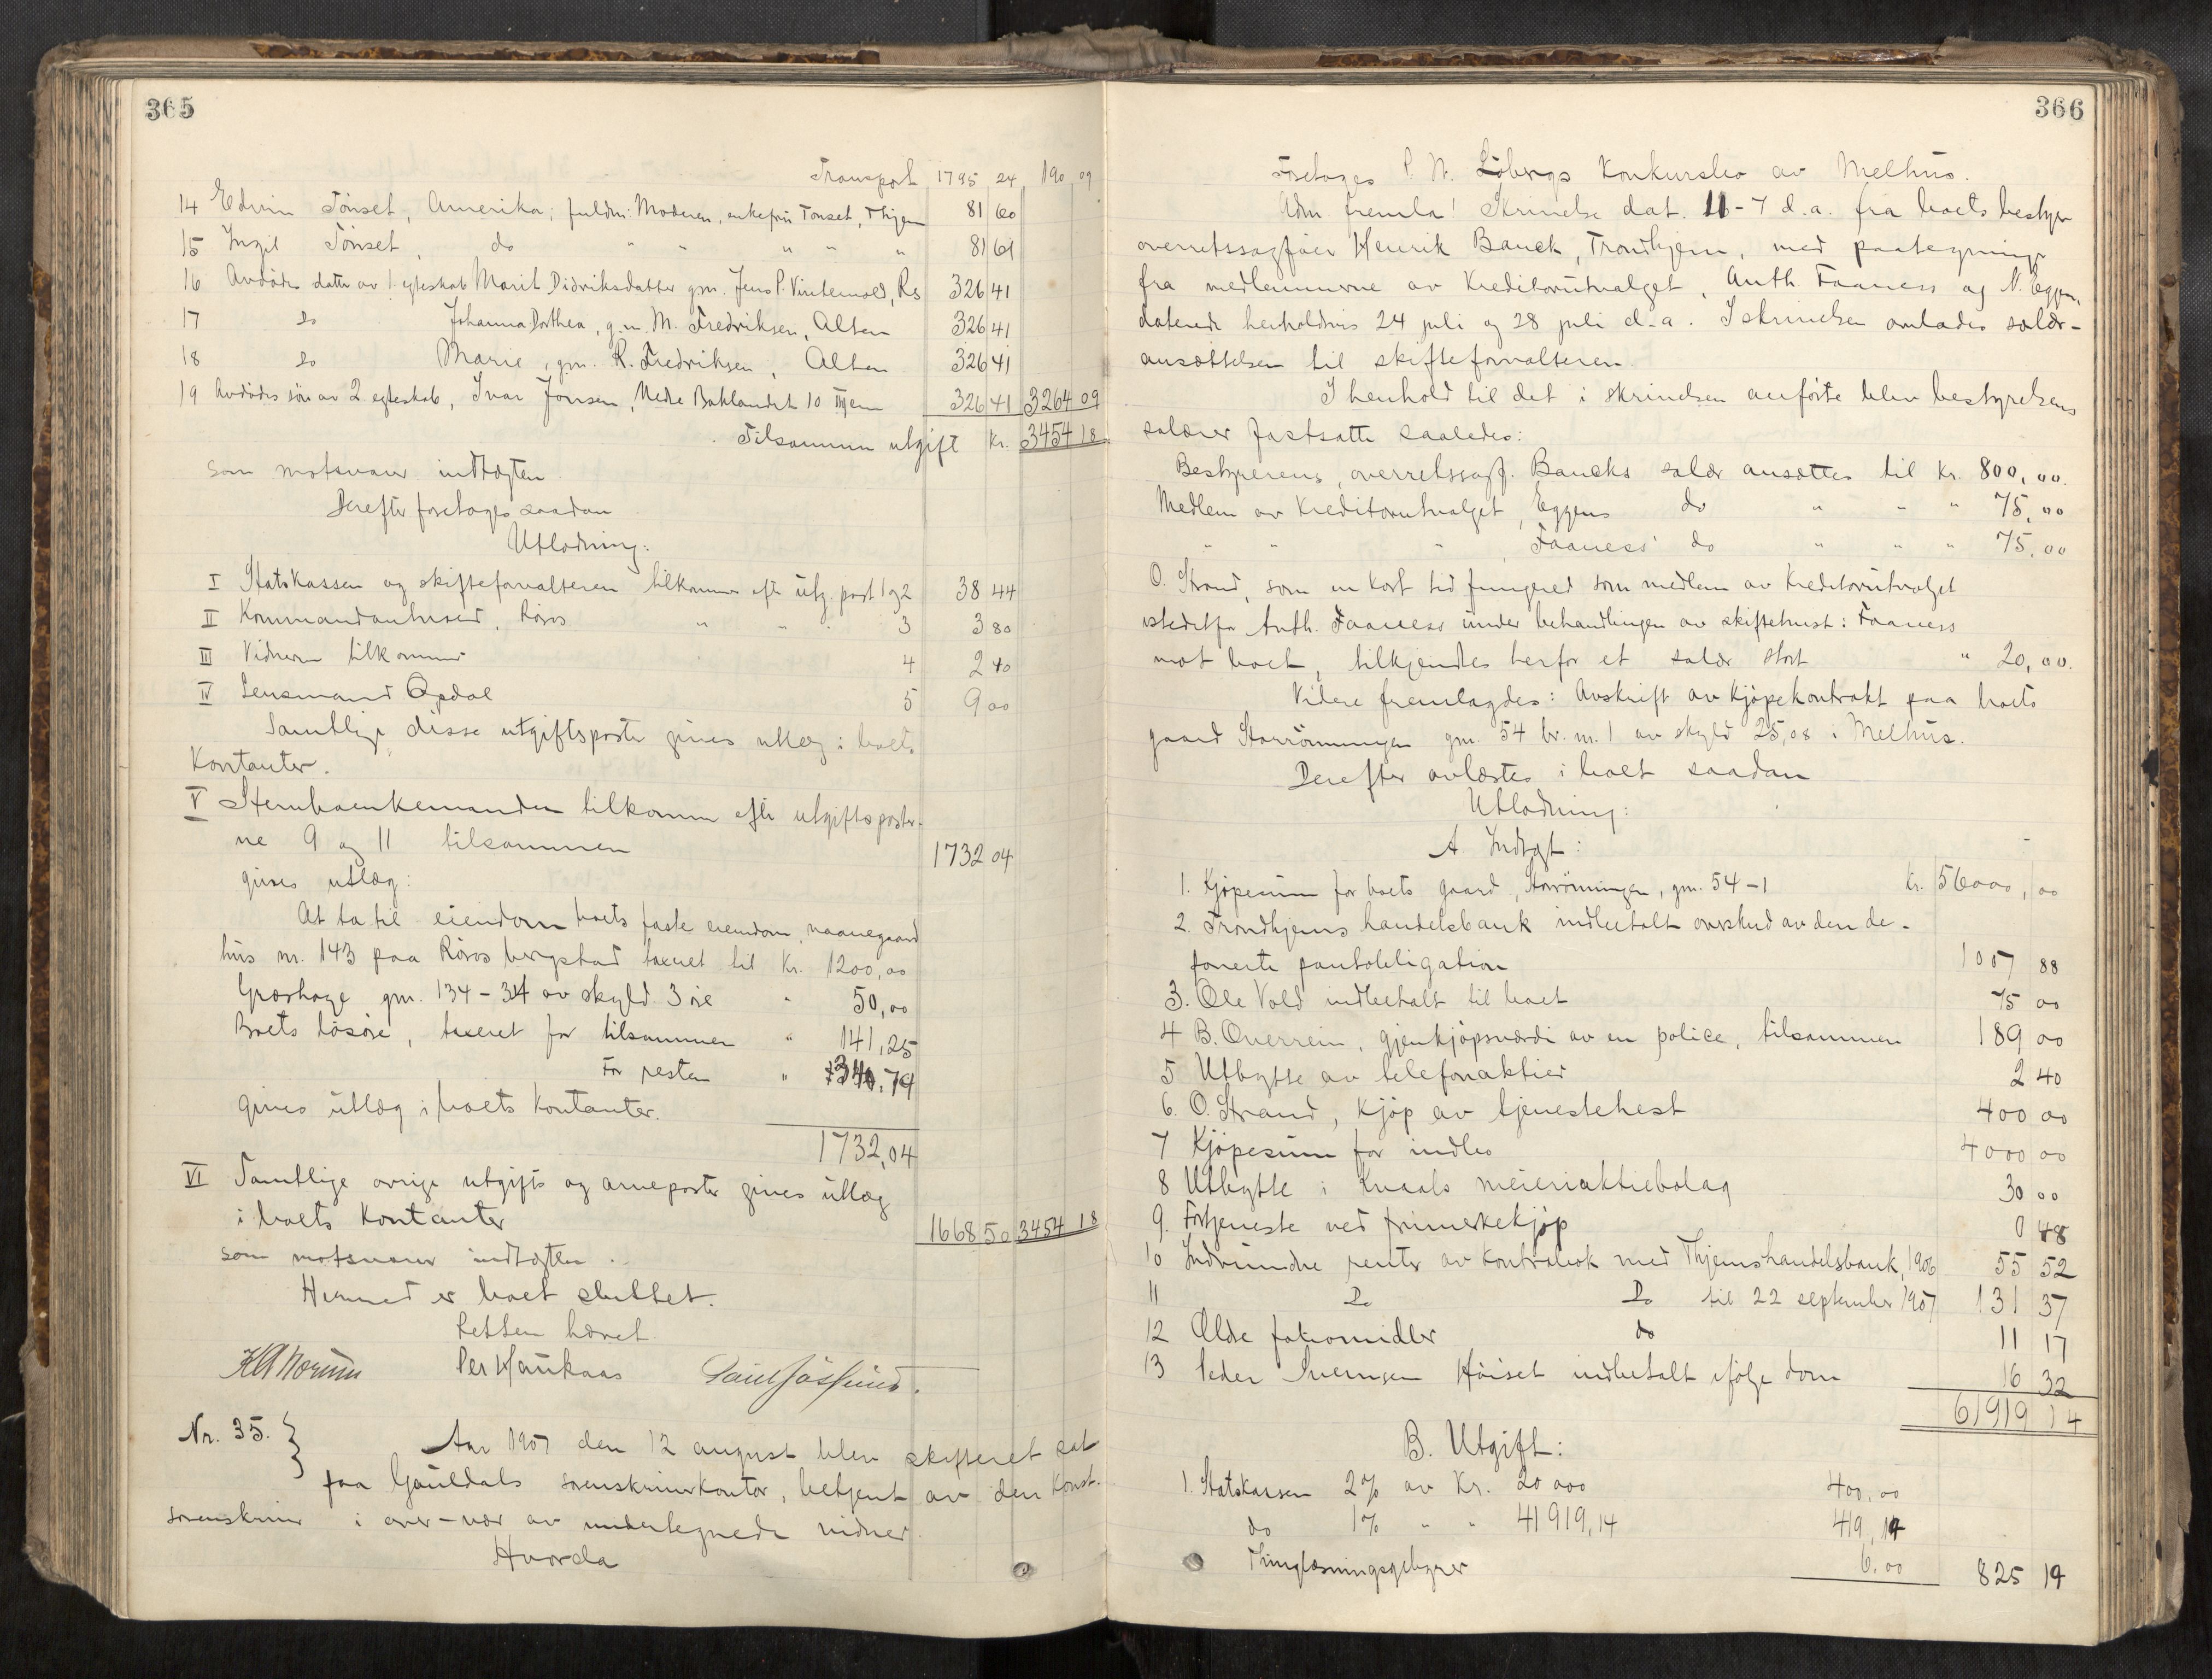 365
Transport 1795 24 190 09
14 Edvin Tönset, Amerika; fuldm: Moderen, enkefru Tonset, Thjem 81 60
15 Ingil Tönset, do " " " " " 81 61
16 Avdödes datter av 1 egteskab Marit Didriksdatter gm. Jens P. Vintervold, Rs 326 41
17 Do Johanna Dorthea, g.m. M. Fredriksen, Alten 326 41
18 Do Marie, gm. R. Fredriksen, Alten 326 41
19 Avdödes sön av 2 egteskab, Ivar Jonsen, Nedre Baklandet 10 Thjem 326 41 3264 09
Tilsammen utgift Kr. 3454 18
som motsvarer indtægten
Derefter foretoges saadan
Utlodning:
I Statskassen og skifteforvalteren tilkommer efter utg. post 1 og 2 38 44
II Kommandanhused, Röros " " " 3 3 80
III Vidnern tilkommer 4 2 40
IV Lensmand Opdal 5 9 00
Samtlige disse utgiftsposter gives utlæg i boets
Kontanter.
V Stervboenkemanden tilkommer efter utgiftsposter-
ne 9 og 11 tilsammen 1732 04
gives utlæg:
At ta til eiendom boets faste eiendom, vaanegaard
hus nr. 143 paa Röros bergstad taxeret til Kr. 1200,00
Græshage gm. 134-34 av skyld 3 öre " 50,00
Boets lösöre, taxeret for tilsammen " 141,25
For resten " 340,79
gives utlæg i boets Kontanter.
1732,04
VI Samtlige övrige utgifts og arveposter gives utlæg
i boets Kontanter 1668 50 3454 18
som motsvarer indtægten.
Hermed er boet sluttet.
Retten hævet
Per Haukaas
Nr. 35. } Aar 1907 den 12 august blev skifteret sat
paa Gauldals sorenskriverkontor, betjent av den Konst.
sorenskriver i over-vær av undertegnede vidner.
Hvorda
366
Foretoges P. N. Löbergs Konkursbo av Melhus.
Adm. fremla: Skrivelse dat. 11-7 d.a. fra boets bestyrer
overretssagförer Henrik Bauck, Trondhjem, med paategninger
fra medlemmerne av Kreditorutvalget, Anth. Faaness og N. Eggen,
daterede henholdsvis 24 juli og 28 juli d.a. I skrivelsen omlades salær-
ansættelsen til skifteforvalteren.
I henhold til det i skrivelsen anförte blev bestyrelsens
salærer fastsatte saaledes:
Bestyrerens, overretssagf. Baucks salær ansættes til Kr. 800,00.
Medlem av Kreditorutvalget, Eggens do " " " 75,00
" " " Faaness' do " " " 75,00
O. Strand, som en kort tid fungered som medlem av Kreditorutvalget
istedetfor Anth. Faaness under behandlingen av skiftetvist: Faaness
mot boet, tilkjendtes herfor et salær stort " 20,00.
Videre fremlagdes: Avskrift av kjöpekontrakt paa boets
gaard Storrönningen gm. 54 br. nr. 1 av skyld 25,08 i Melhus.
Derefter avlæstes i boet saadan
Utlodning:
A Indtægt:
1. Kjöpesum for boets gaard, Storrönningen, gm. 54-1 Kr. 56000,00
2. Trondhjems handelsbank indbetalt overskud av den de-
ponerte pantobligation 1007 88
3. Ole Vold indbetalt til boet 75 00
4 B. Overrein, gjenkjöpsværdi av en police, tilsammen 189 00
5 Utbytte av telefonaktier 2 40
6. O. Strand, kjöp av tjenestehest 400 00
7 Kjöpesum for indbo 4000 00
8 Utbytte i Kvaals meieriaktiebolag 30 00
9. Fortjeneste ved frimerkekjöp 0 48
10 Indvundne renter av Kontrabok med Thjems handelsbank, 1906 55 52
11 Do Do til 22 september 1907 131 37
12 Ældre do 11 17
13 Peder Iversen Höiset indbetalt ifölge dom 16 32
61919 14
B. Utgift:
1. Statskassen 2% av Kr. 20 000 400,00
do 1% " " 41919,14 419,19
Thinglæsningsgebyrer 6,00 825 19